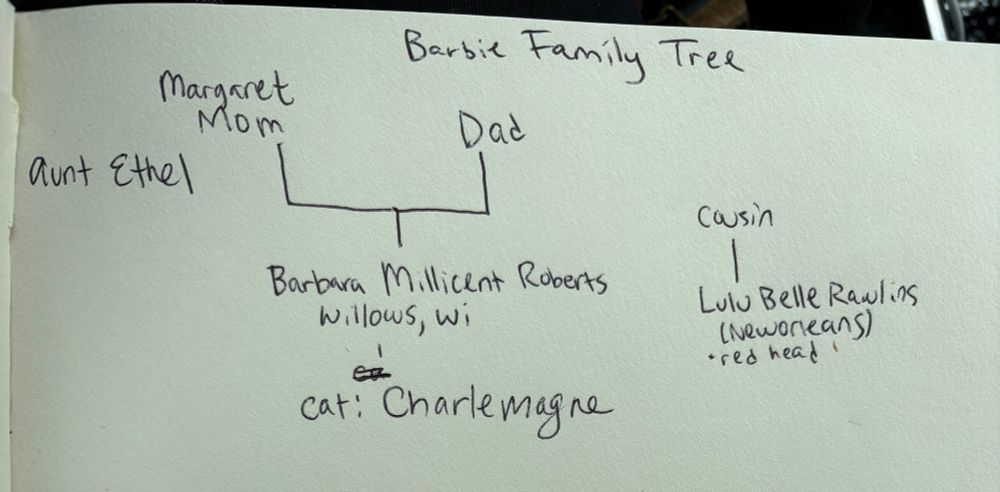 Barbie Family Tree
Margaret
Mom
Dad
aunt Ethel
Barbara Millicent Roberts
Willows, Wi
cat: Charlemagne
Cousin
Lulu Belle Rawlins
(Neworleans)
•red head